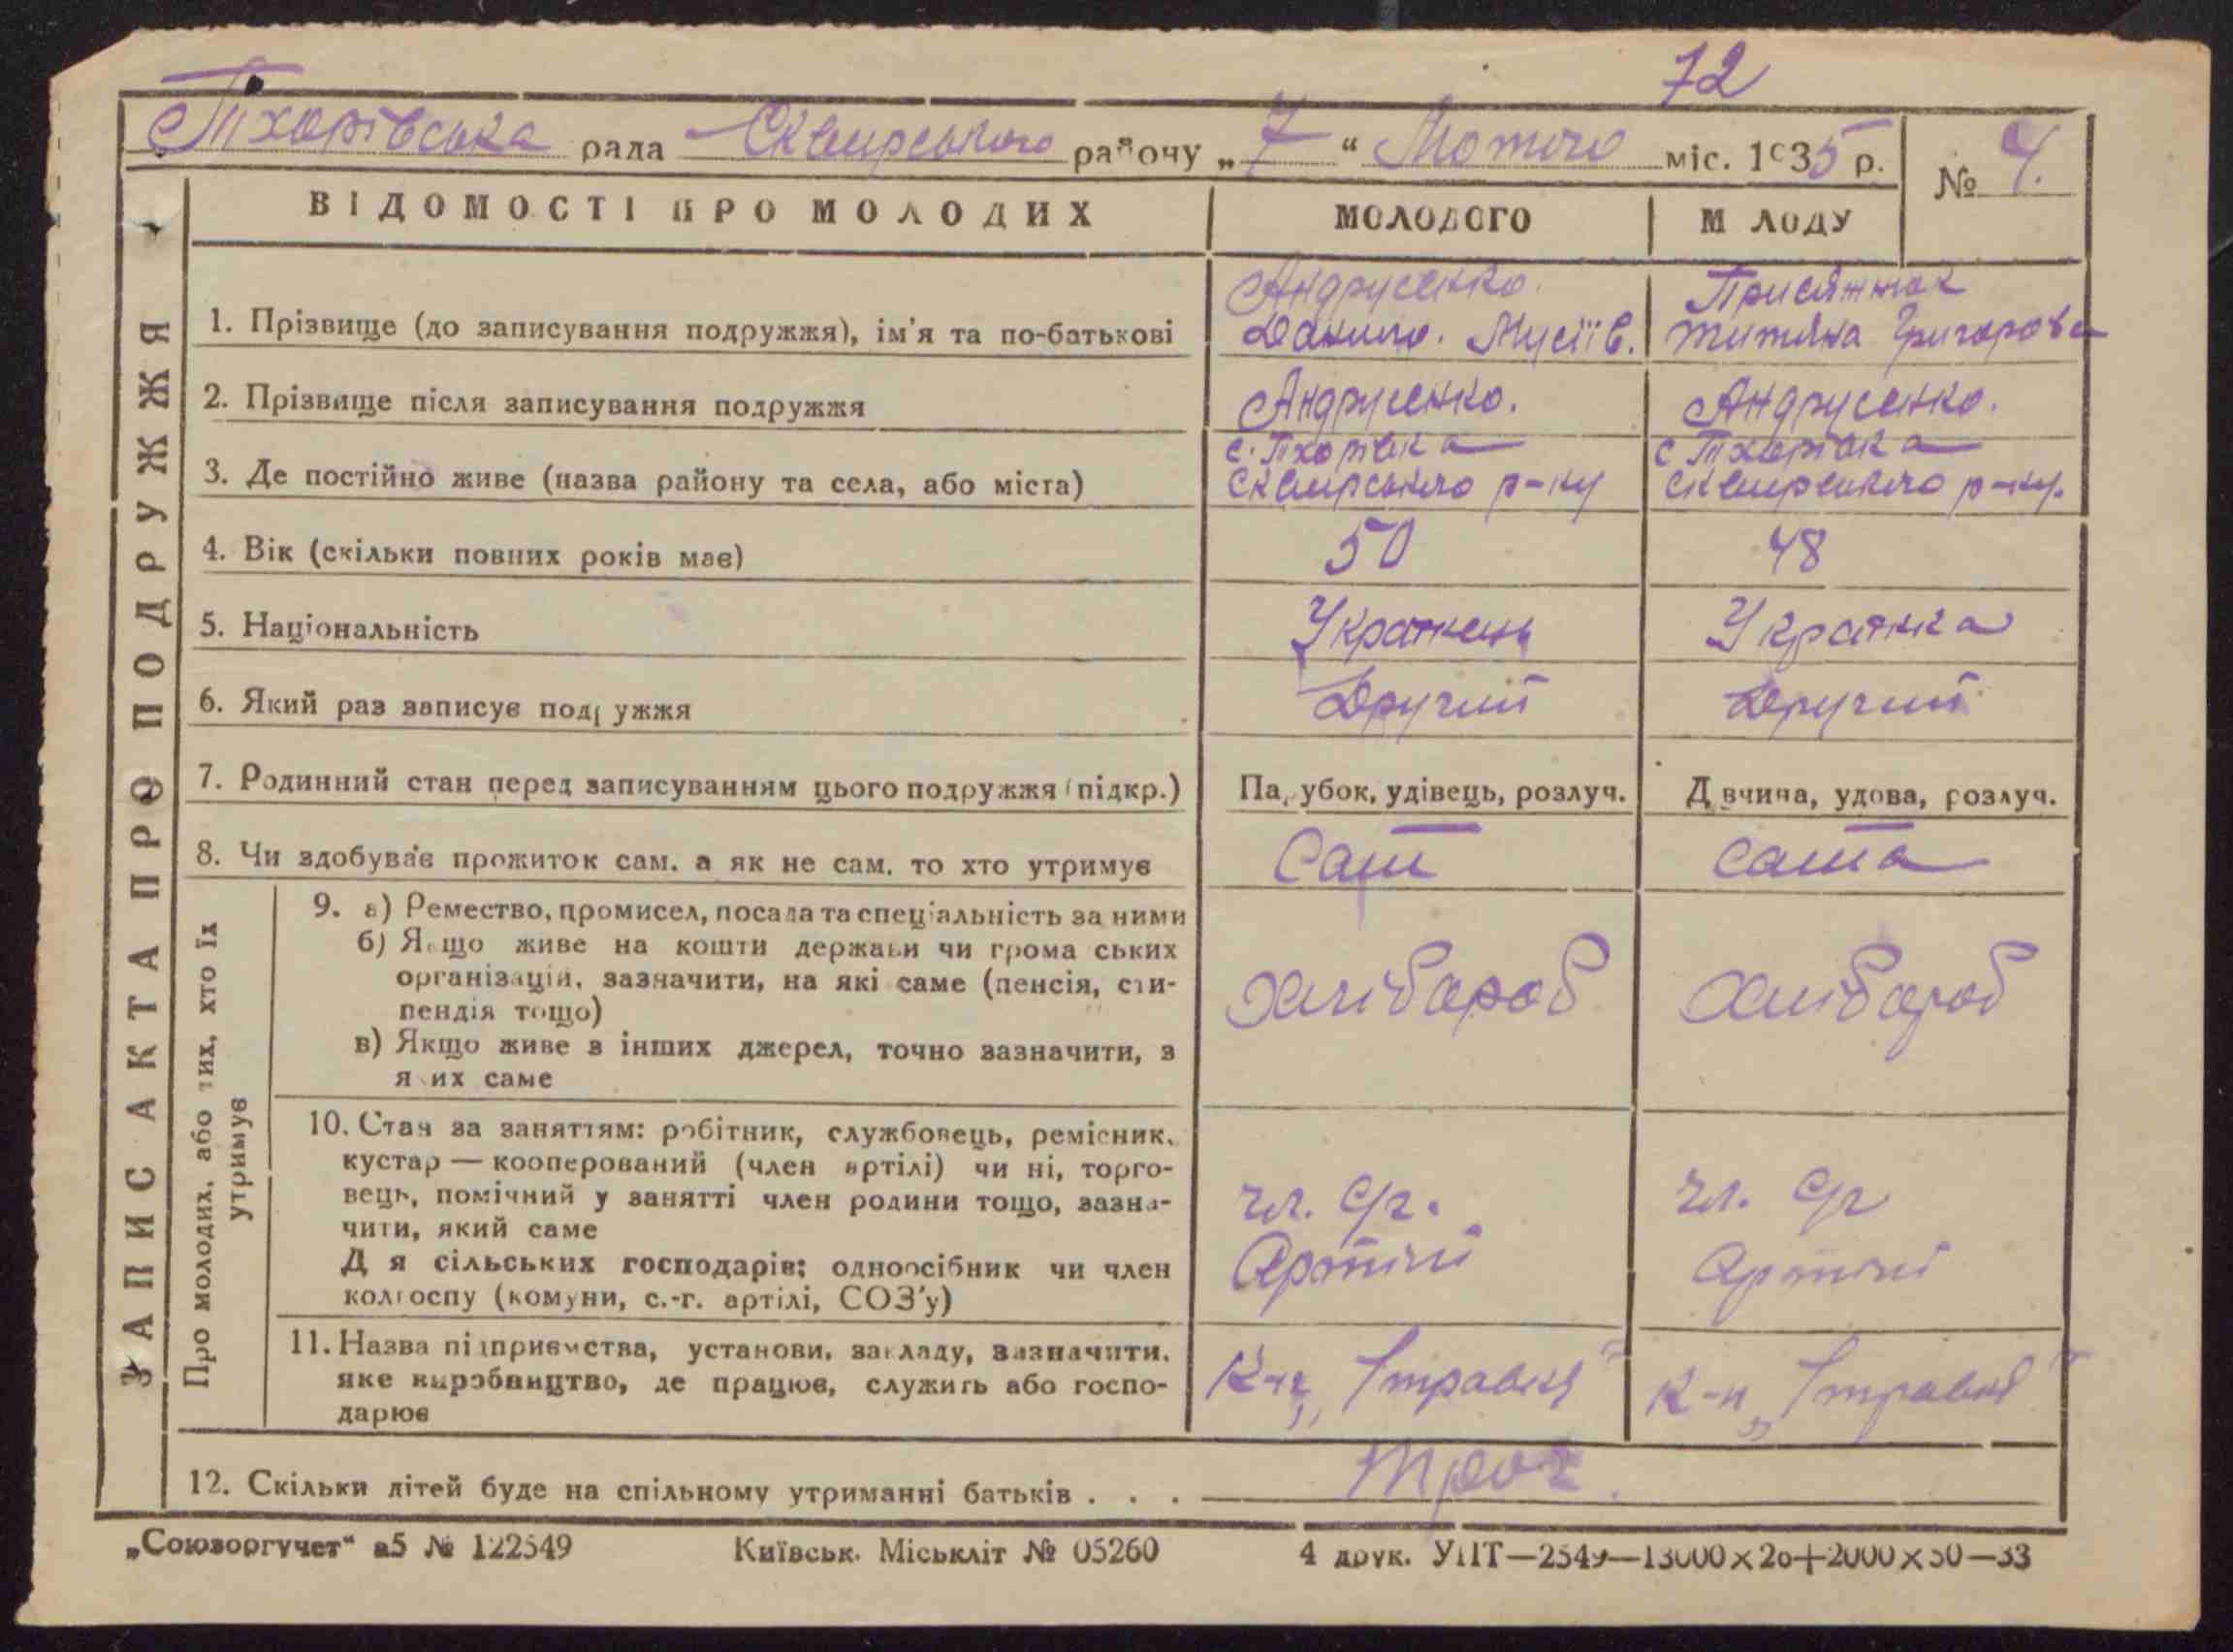 72
Тхорівська рада Сквирського району „7“ Лютого міс. 1935 р.
№ 4.
ВІДОМОСТІ ПРО МОЛОДИХ МОЛОДОГО М ЛОДУ
ЗАПИС АКТА ПРО ПОДРУЖЖЯ
1. Прізвище (до записування подружжя), ім'я та по-батькові
Андрусенко.
Данило. Мусіїв.
Присяжнюк
Титяна Григорова
2. Прізвище після записування подружжя Андрусенко. Андрусенко.
3. Де постійно живе (назва району та села, або міста)
с. Тхорівка
Сквирського р-ну
с Тхорівка
Сквирського р-ну.
4. Вік (скільки повних років має) 50 48
5. Національність Українець Українка
6. Який раз записує подружжя Другий Другий
7. Родинний стан перед записуванням цього подружжя (підкр.) Па убок, удівець, розлуч. Д вчина, удова, розлуч.
8. Чи здобуває прожиток сам. а як не сам. то хто утримує Сам сама
Про молодих, або тих, хто їх
утримує
9. а) Ремество, промисел, посада та спеціальність за ними
б) Якщо живе на кошти держави чи грома ських
організацій, зазначити, на які саме (пенсія, сти-
пендія тощо)
в) Якщо живе з інших джерел, точно зазначити, з
я их саме
хлібороб хлібороб
10. Стан за заняттям: робітник, службовець, ремісник,
кустар — кооперований (член артілі) чи ні, торго-
вець, помічний у занятті член родини тощо, зазна-
чити, який саме
Д я сільських господарів: одноосібник чи член
колгоспу (комуни, с.-г. артілі, СОЗ'у)
чл. с/г.
Артілі
чл. с/г
Артілі
11. Назва підприємства, установи, закладу, зазначити,
яке виробництво, де працює, служить або госпо-
дарює
К-п „1 травня“ К-п „1 травня“
12. Скільки дітей буде на спільному утриманні батьків . . . Троє.
„Союзоргучет“ а5 № 122549 Київськ. Міськліт № 05260 4 друк. УПТ—2549—13000×20+2000×50—33